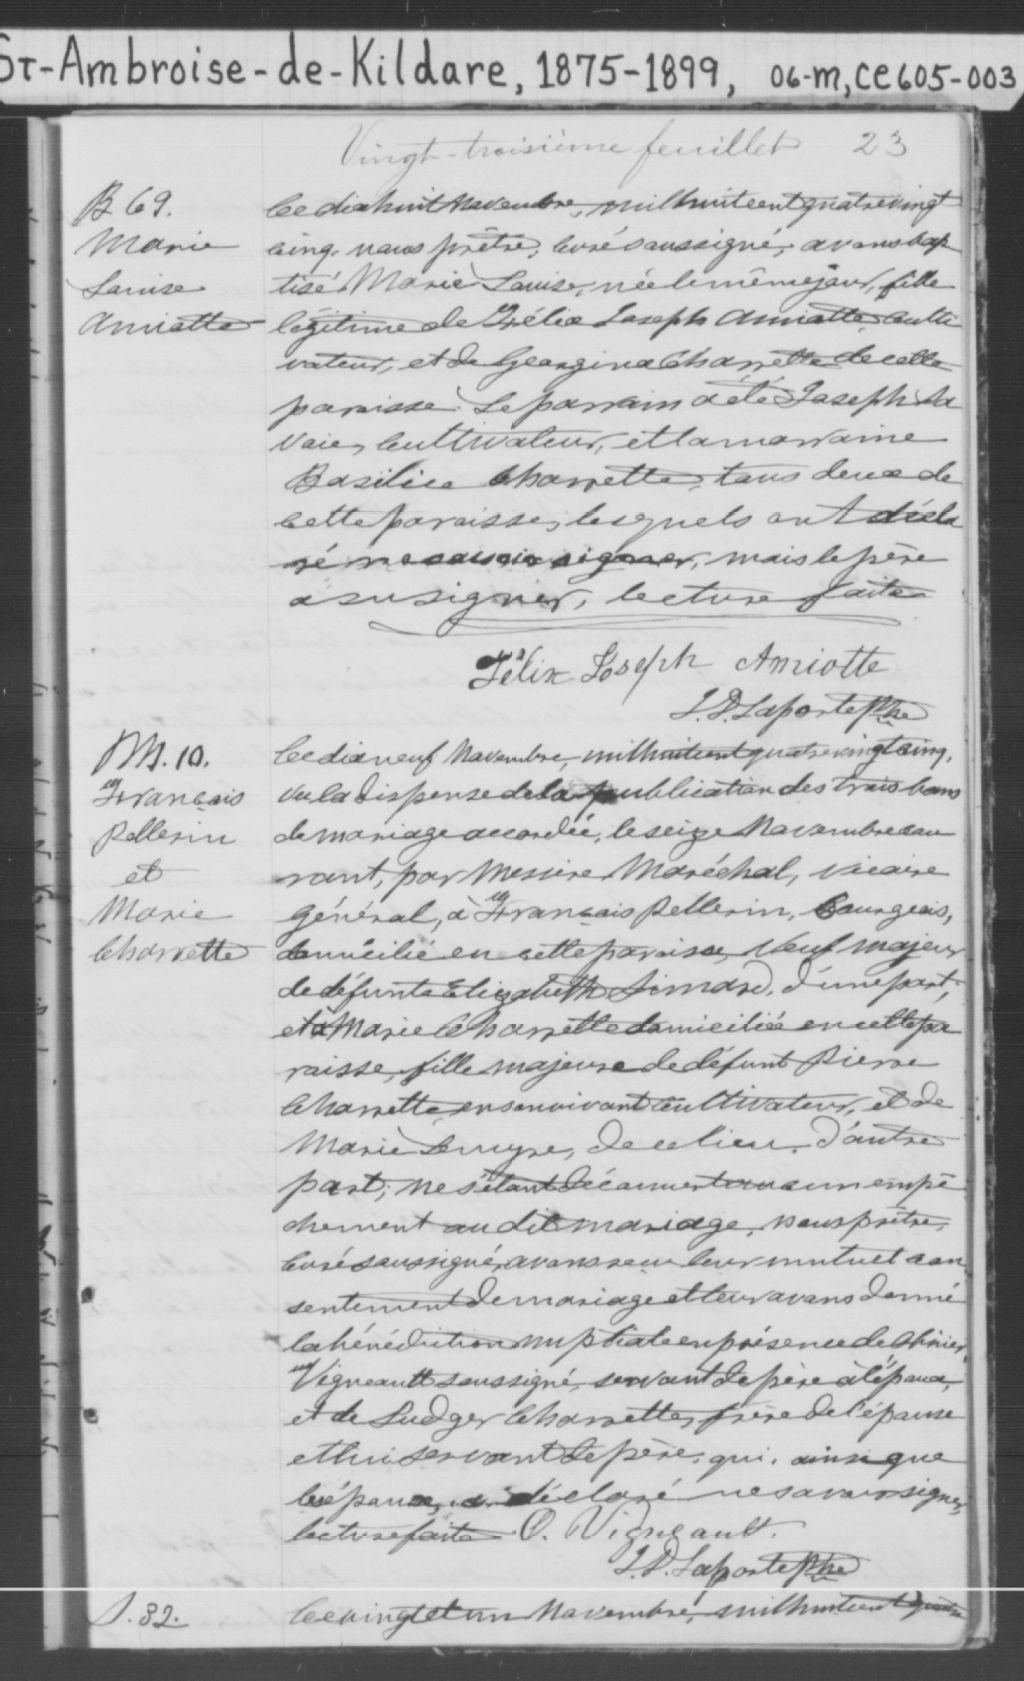 St-Ambroise-de-Kildare, 1875-1899, 06-M, CE605-003
Vingt-troisième feuillet 23
B 69.
Marie
Louise
Amiotte
Ce dixhuit Novembre, mil huit cent quatrevingt
cinq, nous prêtre, curé soussigné, avons bap
tisé Marie Louise, née le même jour, fille
légitime de Félix Joseph Amiotte, culti
vateur, et de Georgina Charrette de cette
paroisse. Le parrain a été Joseph La
voie, cultivateur, et la marraine
Basilice Charrette, tous deux de
cette paroisse, lesquels ont décla
ré ne savoir signer, mais le père
a su signer, lecture faite
Félix Joseph Amiotte
J. D. Laporte Ptre
M. 10.
François
Pellerin
et
Marie
Charrette
Ce dixneuf Novembre, mil huit cent quatrevingt cinq,
vu la dispense de la publication des trois bans
de mariage accordée, le seize Novembre cou
rant, par Messire Maréchal, vicaire
général, à François Pellerin, bourgeois,
domicilié en cette paroisse, veuf majeur
de défunte Elizabeth Simard, d'une part;
et à Marie Charrette domiciliée en cette pa
roisse, fille majeure de défunt Pierre
Charrette en son vivant cultivateur, et de
Marie de ce lieu, d'autre
part; ne s'étant découvert aucun empê
chement au dit mariage, nous prêtre,
curé soussigné, avons reçu leur mutuel con
sentement de mariage et leur avons donné
la bénédiction nuptiale en présence de
Vigneault soussigné, servant de père à l'époux,
et de Ludger Charrette, frère de l'épouse
et lui servant de père, qui, ainsi que
les époux, a déclaré ne savoir signer,
lecture faite O. Vigneault.
J. D. Laporte Ptre
S. 32.
Ce vingt et un Novembre, mil huit cent quatre